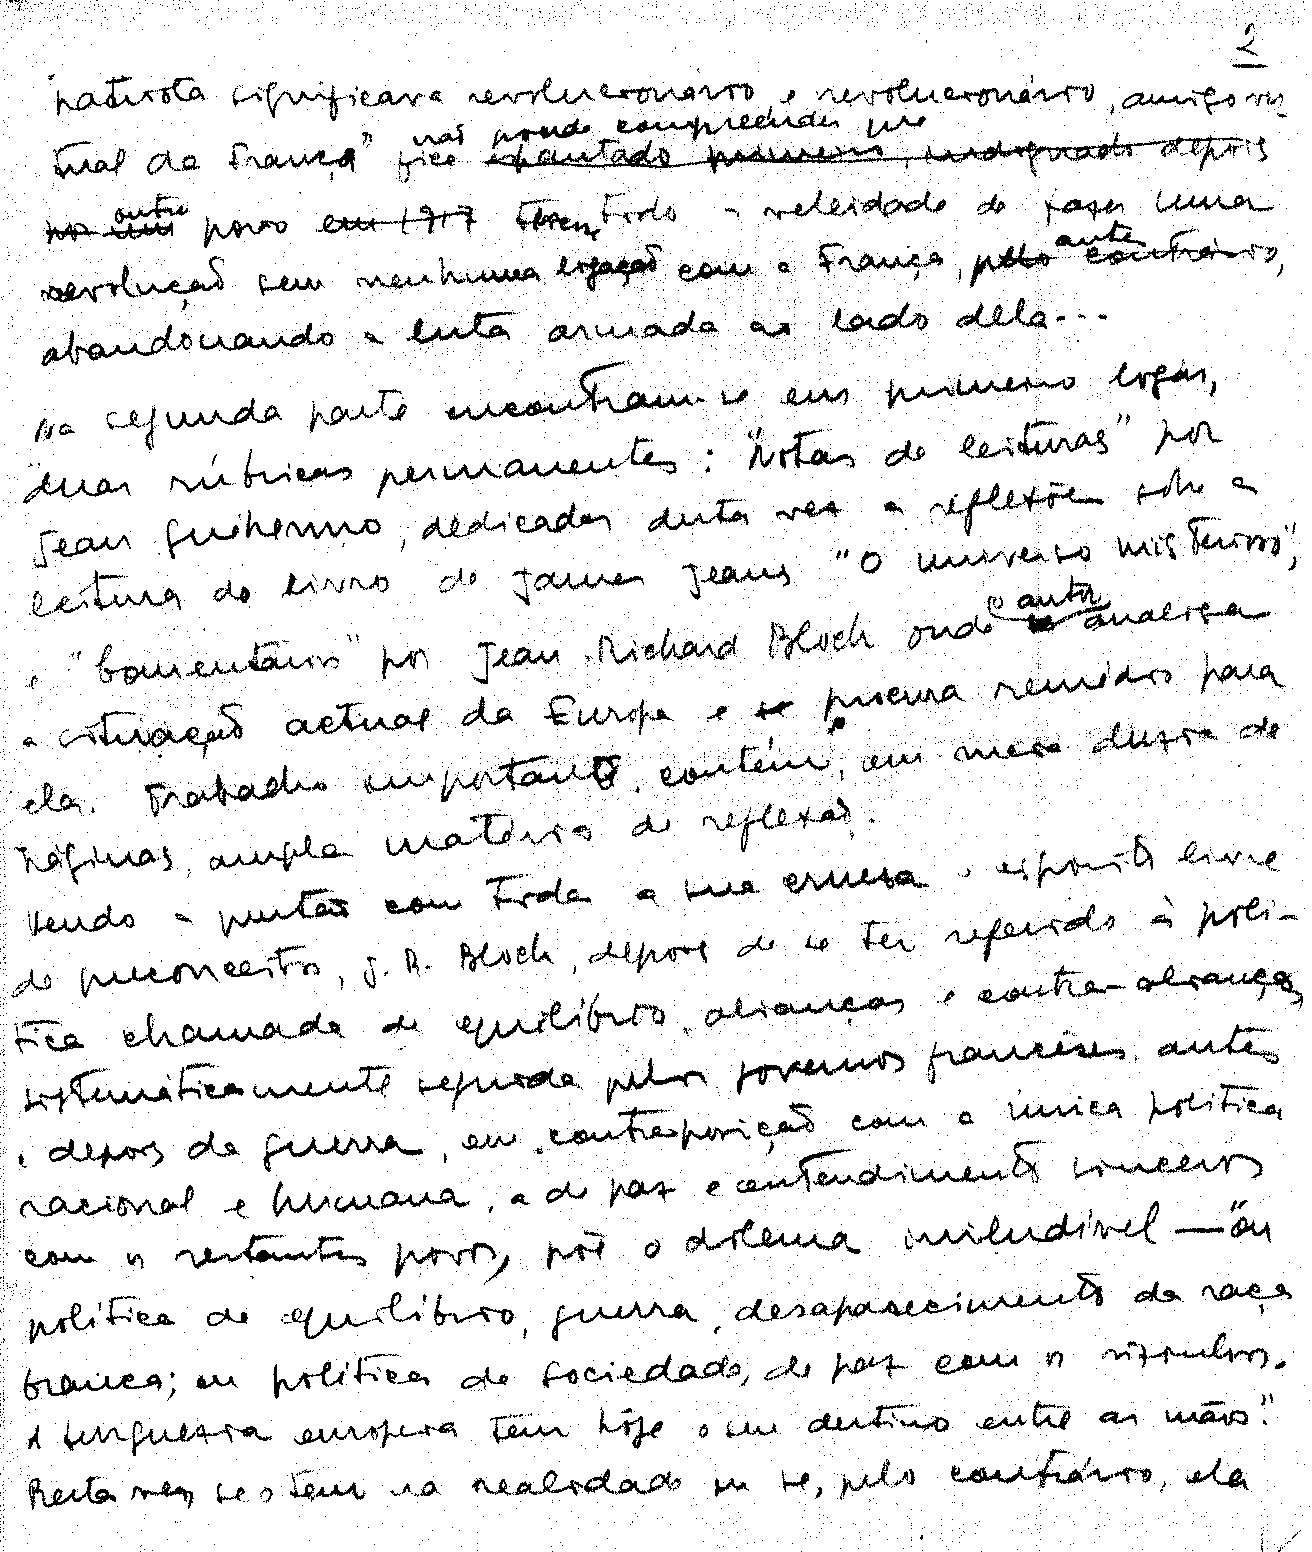 2
patriota significava revolucionário e revolucionário, amigo vir-
tual da França" não poude compreender que fica espantado primeiro, indignado depois
por um outro povo em 1917 tivesse tido a veleidade de fazer uma
revolução sem nenhuma ligação com a França, pelo contrário, antes
abandonando a luta armada ao lado dela...
Na segunda parte encontram-se em primeiro logar,
duas rúbricas permanentes: "Notas de leituras" por
Jean Guihenno, dedicadas desta vez a reflexões sôbre a
leitura do livro de James Jeans "O universo misterioso",
e "Comentários" por Jean Richard Bloch onde o autor se analisa
a situação actual da Europa e se procura remédios para
ela. Trabalho importante, contém, em meia duzia de
páginas, ampla matéria de reflexão.
Vendo a questão com toda a sua crueza e espírito livre
de preconceitos, J. R. Bloch, depois de se ter referido à polí-
tica chamada de equilíbrio, alianças e contra-alianças,
sistemáticamente seguida pelos governos franceses antes
e depois da guerra, em contraposição com a única política
racional e humana, a de paz e entendimento sinceros
com os restantes povos, põe o dilema iniludível — "ou
política de equilíbrio, guerra, desaparecimento da raça
branca; ou política de sociedade, de paz com os visinhos.
A burguesia europeia tem hôje o seu destino entre as mãos."
Resta ver se o tem na realidade ou se, pelo contrário, ela